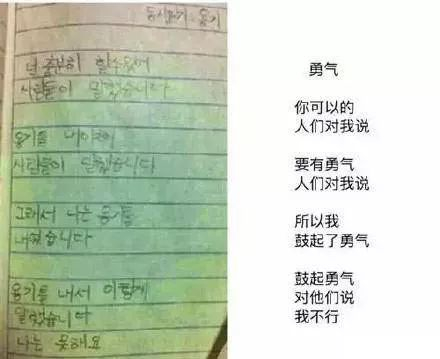 동시쓰기 - 용기
넌 충분히 할수있어
사람들이 말했습니다
용기를 내야해
사람들이 말했습니다
그래서 나는 용기를
내었습니다
용기를 내서 이렇게
말했습니다
나는 못해요
勇气
你可以的
人们对我说
要有勇气
人们对我说
所以我
鼓起了勇气
鼓起勇气
对他们说
我不行